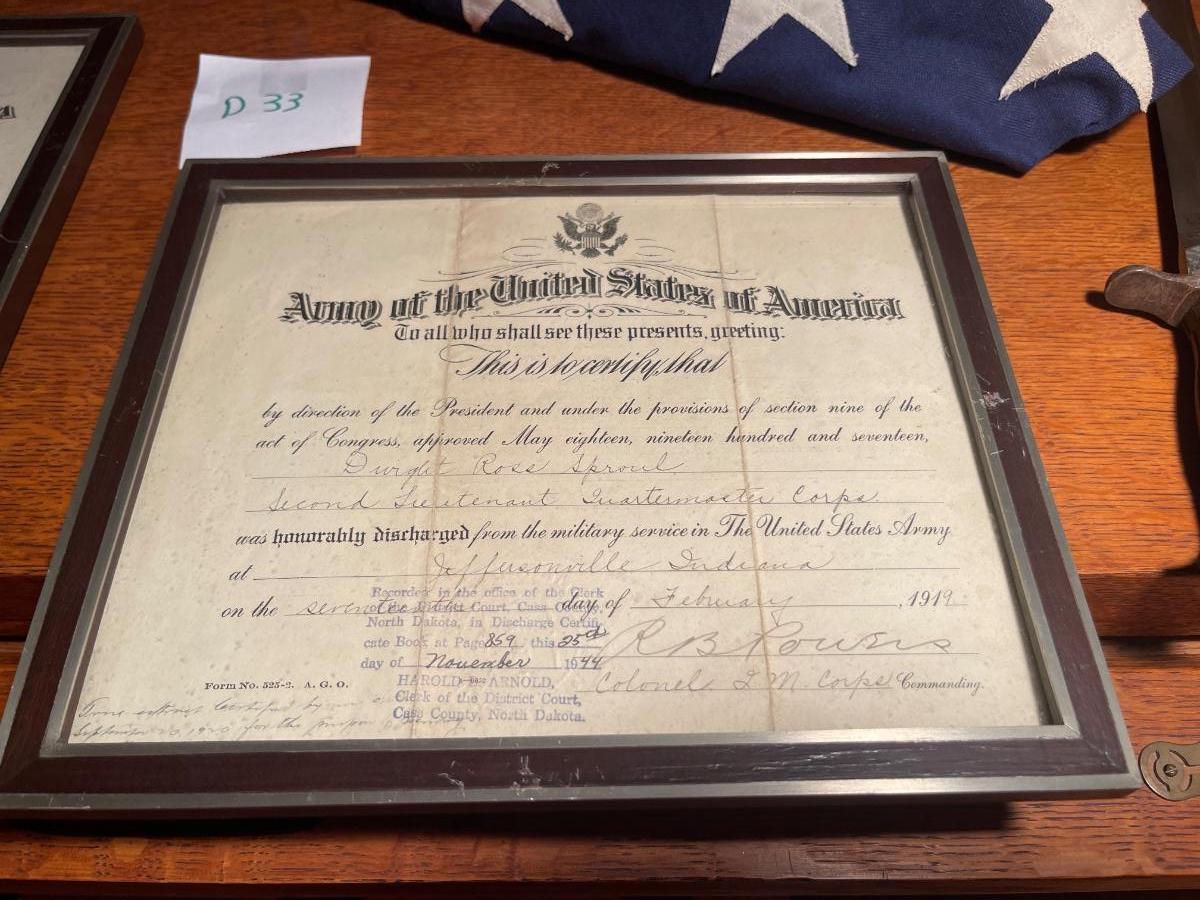 D 33
a
Army of the United States of America
To all who shall see these presents, greeting:
This is to certify, that
by direction of the President and under the provisions of section nine of the
act of Congress, approved May eighteen, nineteen hundred and seventeen,
Dwight Ross Sproul
Second Lieutenant Quartermaster Corps
was honorably discharged from the military service in The United States Army
at Jeffersonville Indiana
on the seventeenth day of February, 1919
Recorded in the office of the Clerk
of the District Court, Cass County,
North Dakota, in Discharge Certifi-
cate Book at Page 859 this 25rd
day of November 1944
HAROLD ARNOLD,
Clerk of the District Court,
Cass County, North Dakota.
R B Powers
Colonel Q M Corps Commanding.
Form No. 525-2. A. G. O.
certified by
September for the